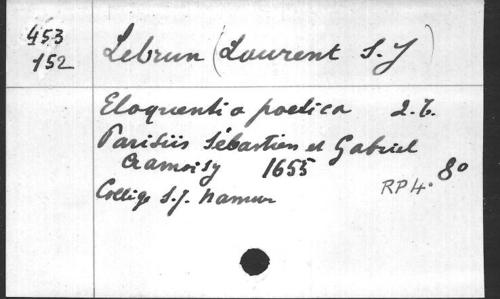 453
152
Lebrun (Laurent S. J)
Eloquentia poetica 2. t.
Parisiis Sébastien et Gabriel
Cramoisy 1655 8°
RP4.
College S.J. Namur